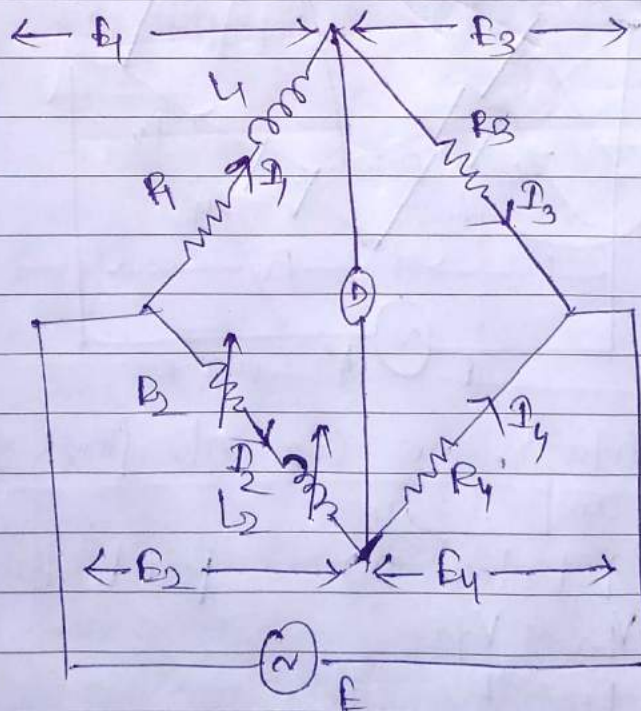 E1 E3
L1
R3
R1 I1 I3
D
R2
I2 I4
L2 R4
E2 E4
~
E